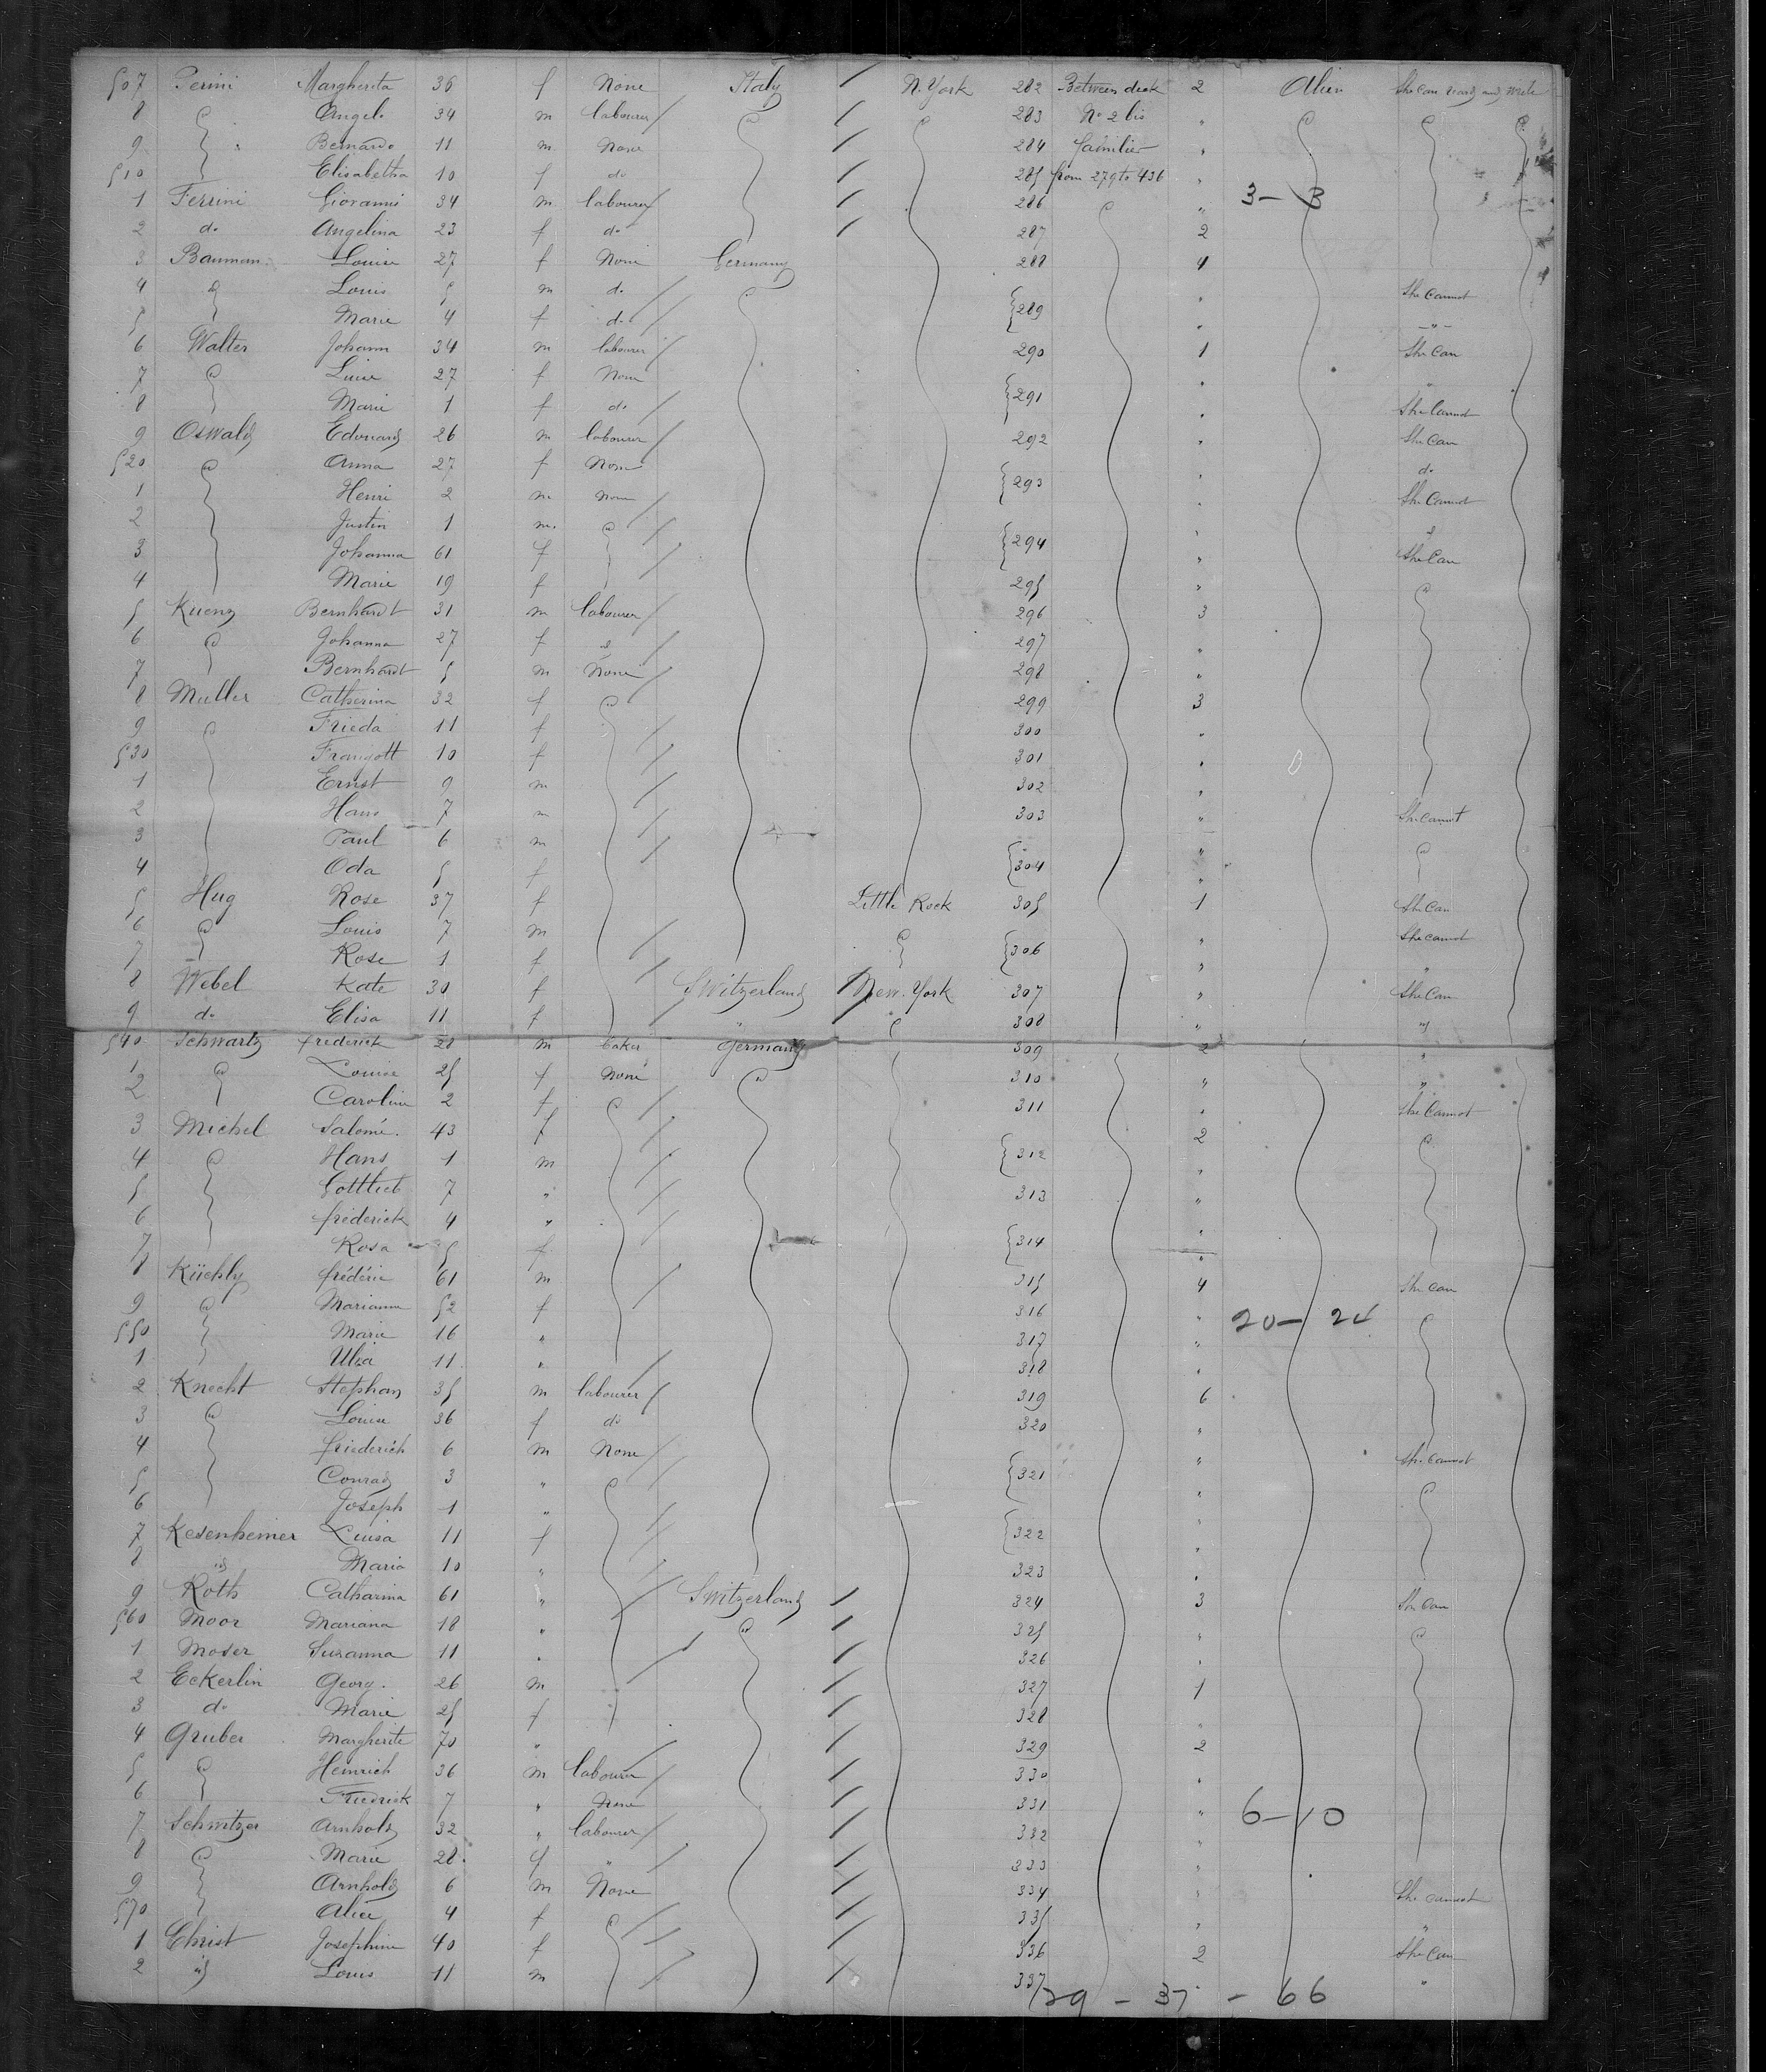 507 Perini Margherita 36 f None Italy N. York 282 Between deck 2 Alien She Can read and write
8 Angelo 34 m labourer 283 No 2 bis "
9 Bernardo 11 m None 284 families "
510 Elisabetha 10 f do 285 from 279 to 436 "
1 Ferrini Giovanni 34 m labourer 286 " 3 – 3
2 do Angelina 23 f do 287 2
3 Bauman Louise 27 f None Germany 288 4
4 Louis 5 m do 289 " She Cannot
5 Marie 4 f do " – " –
6 Walter Johann 34 m labourer 290 1 She Can
7 Line 27 f None 291 " "
8 Marie 1 f do " She Cannot
9 Oswald Edouard 26 m labourer 292 " She Can
520 Anna 27 f None 293 " do
1 Henri 2 m None " She Cannot
2 Justin 1 m. 294 "
3 Johanna 61 f " She Can
4 Marie 19 f 295 "
5 Kuenz Bernhardt 31 m labourer 296 3
6 Johanna 27 f id 297 "
7 Bernhardt 5 m None 298 "
8 Muller Catherina 32 f 299 3
9 Frieda 11 f 300 "
530 Fraugott 10 f 301 "
1 Ernst 9 m 302 "
2 Hans 7 m 303 " She Cannot
3 Paul 6 m 304 "
4 Oda 5 f "
5 Hug Rose 37 f Little Rock 305 1 She Can
6 Louis 7 m 306 " She cannot
7 Rose 1 f " "
8 Webel Kate 30 f Switzerland New. York 307 " She Can
9 do Elisa 11 f " 308 " id
540 Schwartz frederick 28 m baker Germany 309 2 "
1 Louise 25 f None 310 " "
2 Caroline 2 f 311 " She Cannot
3 Michel Salomé. 43 f 312 2
4 Hans 1 m "
5 Gottlieb 7 " 313 "
6 frederick 4 " 314 "
7 Rosa 5 f "
8 Küchly frédéric 61 m 315 4 She can
9 Marianne 52 f 316 " 20 – 24
550 Marie 16 " 317 "
1 11 " 318 "
2 Knecht Stephan 35 m labourer 319 6
3 Louise 36 f do 320 "
4 friederich 6 m None 321 " She cannot
5 Conrad 3 " "
6 Joseph 1 " 322 "
7 Kesenheimer Luisa 11 f "
8 id Maria 10 " 323 "
9 Roth Catharina 61 " Switzerland 324 3 She Can
560 Moor Mariana 18 " 325 "
1 Moser Suzanna 11 " 326 "
2 Eckerlin Georg. 26 m 327 1
3 do Marie 25 f 328 "
4 Gruber Margherite 70 " 329 2
5 Heinrich 36 m labourer 330 "
6 Friedrick 7 " None 331 " 6 – 10
7 Schnitzer Arnhold 32 " labourer 332 "
8 Marie 28. f " 333 "
9 Arnhold 6 m None 334 " She cannot
570 Alice 4 f 335 " "
1 Christ Josephine 40 f 336 2 She Can
2 id Louis 11 m 337 " "
29 – 37 – 66